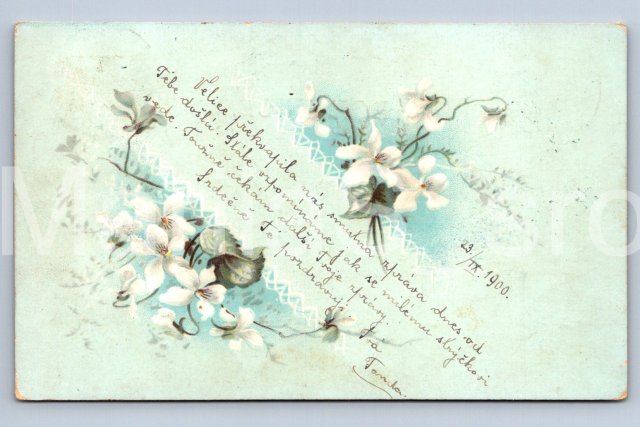 Velice překvapila nás smutná zpráva dnes od
Tebe došlá. Stále vzpomínáme jak se milému strýčkovi
vede. Toužně čekám další Tvoje zprávy.
Srdečně Tě pozdravuje Tvá
23./IX. 1900.